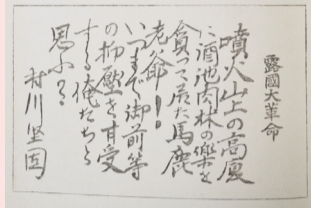 露國大革命
噴火山上の高廈
に酒池肉林の樂を
貪つて居た馬鹿
老爺！
いつまで御前等
の抑壓を甘受
する俺たちと
思ふ？
村川堅固